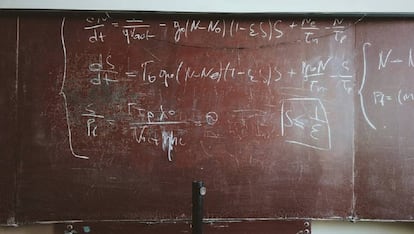 dN/dt = I/qVact - g₀(N-N₀)(1-εS)S + N₀/τn - N/τp
dS/dt = Γ₀g₀(N-N₀)(1-εS)S + Γ₀N/τn - S/τp
S/Pf = Γτpλ₀/Vact ηhc = ϑ S ≤ 1/ε
N - N
Pf = (m